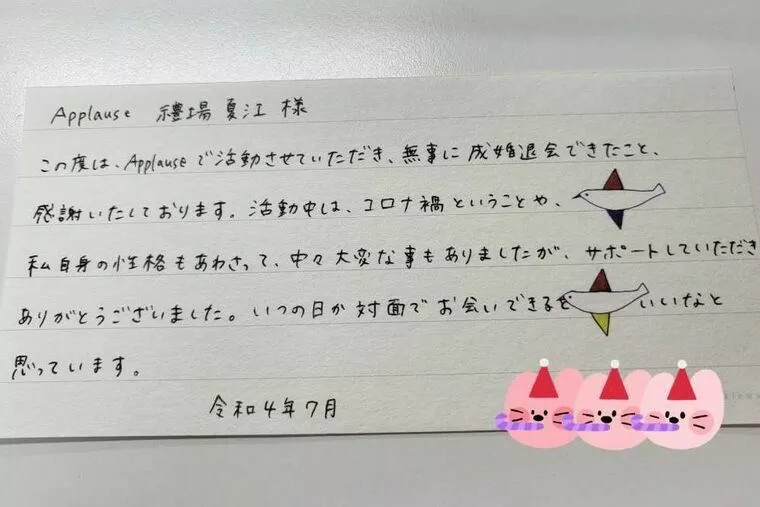 Applause 禮場 夏江 様
この度は、Applauseで活動させていただき、無事に成婚退会できたこと、
感謝いたしております。活動中は、コロナ禍ということや、
私自身の性格もあわさって、中々大変な事もありましたが、サポートしていただき
ありがとうございました。いつの日か対面でお会いできると いいなと
思っています。
令和4年7月